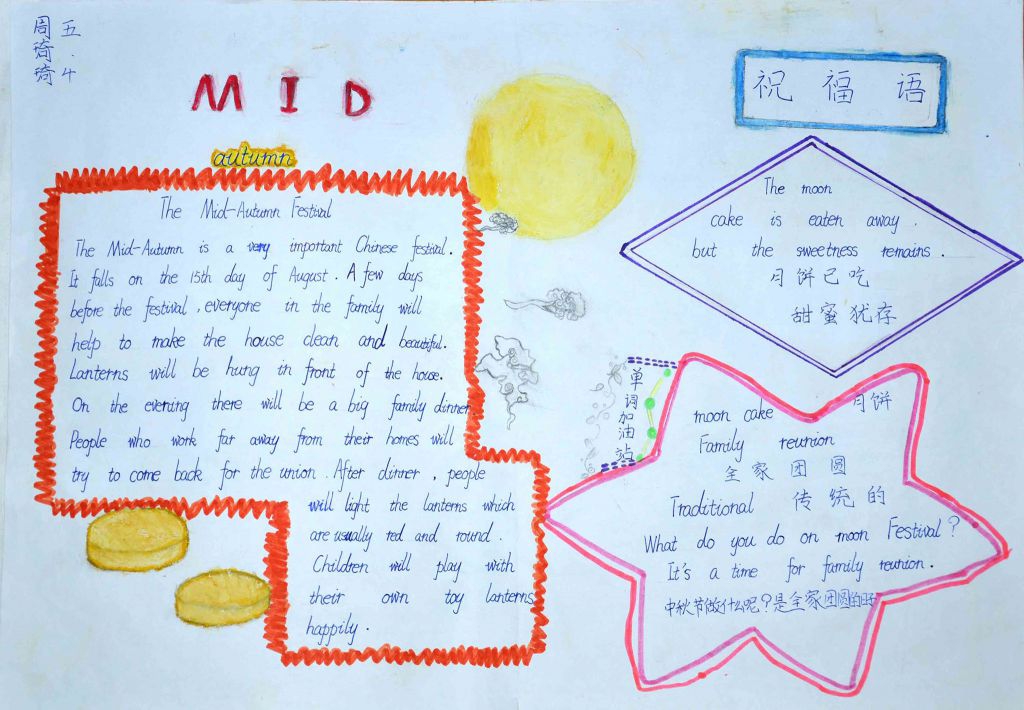 五.4
周琦琦
MID
autumn
The Mid-Autumn Festival
The Mid-Autumn is a very important Chinese festival.
It falls on the 15th day of August. A few days
before the festival, everyone in the family will
help to make the house clean and beautiful.
Lanterns will be hung in front of the house.
On the evening there will be a big family dinner
People who work far away from their homes will
try to come back for the union. After dinner, people
will light the lanterns which
are usually red and round.
Children will play with
their own toy lanterns
happily.
祝福语
The moon
cake is eaten away.
but the sweetness remains.
月饼已吃
甜蜜犹存
单词加油站
moon cake 月饼
Family reunion
全家团圆
Traditional 传统的
What do you do on moon Festival?
It's a time for family reunion.
中秋节做什么呢?是全家团圆的